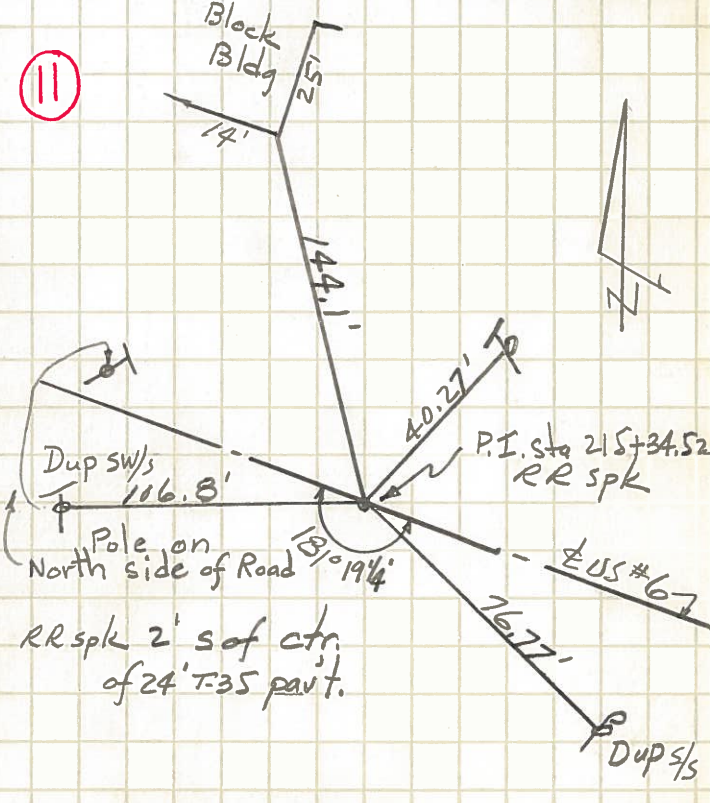 11
Block
Bldg
25'
14'
144.1'
N
40.27'
P.I. sta 215+34.52
RR spk
Dup sw/s
106.8'
Pole on
North side of Road
181° 19¼'
℄ US #6
76.77'
RR spk 2' s of ctr.
of 24' T-35 pav't.
Dup s/s